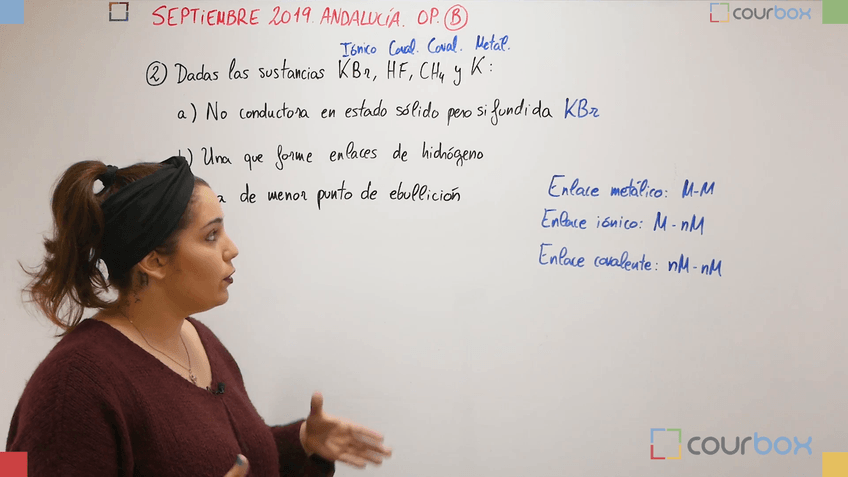 SEPTIEMBRE 2019. ANDALUCÍA. OP. B
courbox
Iónico Coval. Coval. Metál.
2 Dadas las sustancias KBr, HF, CH4 y K:
a) No conductora en estado sólido pero si fundida KBr
) Una que forme enlaces de hidrógeno
de menor punto de ebullición
Enlace metálico: M-M
Enlace iónico: M-nM
Enlace covalente: nM-nM
courbox